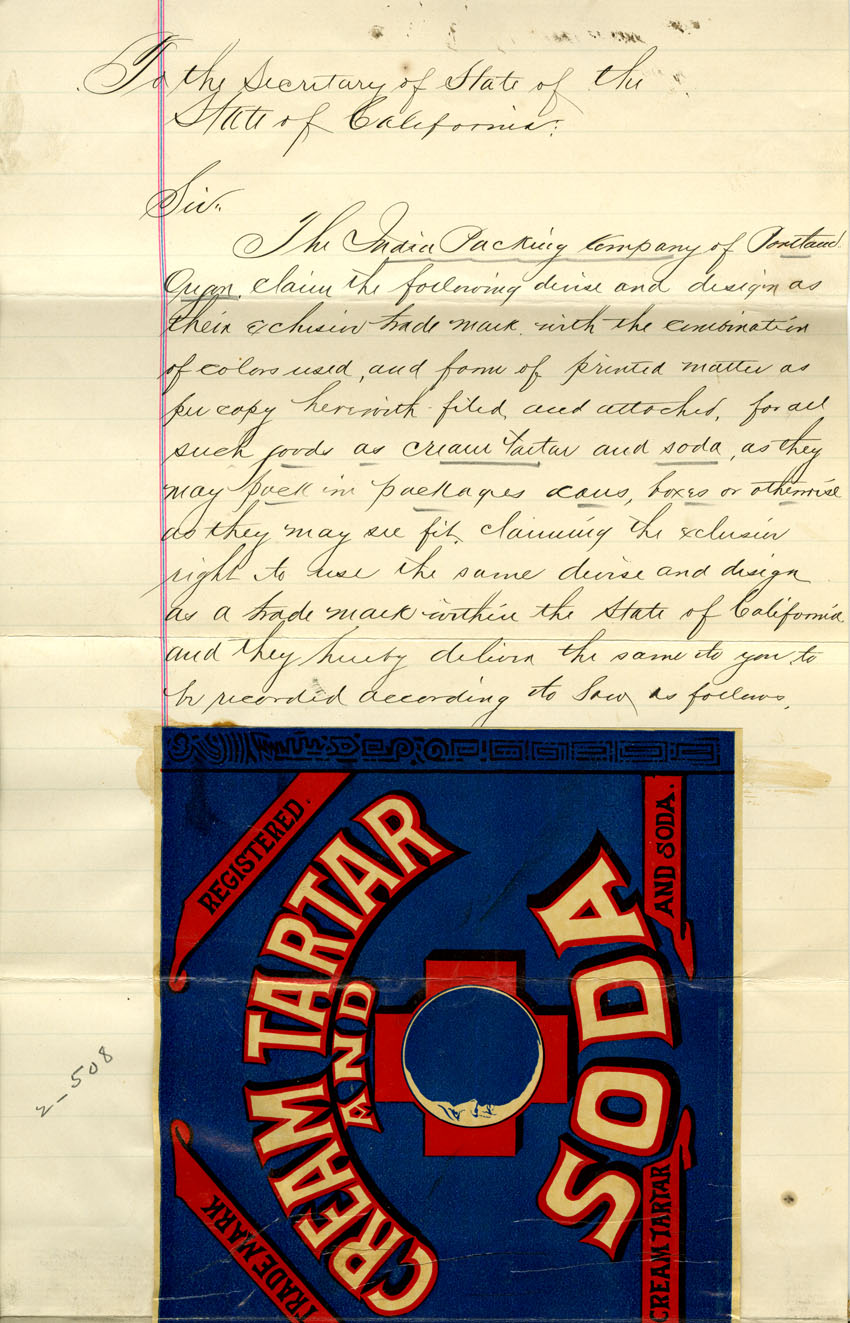 To the Secretary of State of the
State of California:
Sir:
The India Packing Company of Portland
Oregon, claim the following devise and design as
their exclusive trade mark with the combination
of colors used, and form of printed matter as
per copy herewith filed, and attached, for all
such goods as cream tartar and soda, as they
may pack in packages cans, boxes or otherwise
as they may see fit, claiming the exclusive
right to use the same devise and design
as a trade mark within the State of California
and they hereby deliver the same to you to
be recorded according to Law, as follows,
REGISTERED.
TRADE MARK
CREAM TARTAR
AND
SODA
CREAM TARTAR
AND SODA.
2-508